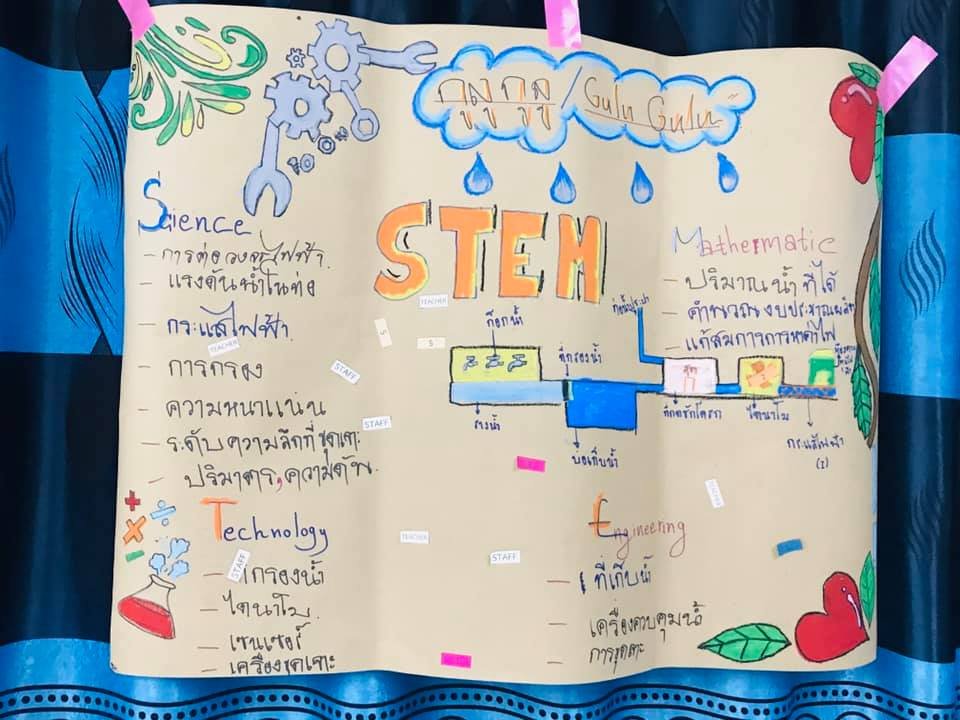 กูมูกูมู/Gulu Gulu
STEM
Science
- การต่อวงจรไฟฟ้า.
แรงดันน้ำในท่อ
- กระแสไฟฟ้า.
- การกรอง
- ความหนาแน่น
- ระดับความลึกที่ขุดเจาะ
ปริมาตร, ความดัน.
Mathermatic
- ปริมาณน้ำที่ได้
- คำนวณงบประมาณผลิต
- แก้สมการการหาค่าไฟ
ก๊อกน้ำ
ท่อน้ำประปา
ที่กรองน้ำ
อ่างน้ำ
บ่อเก็บน้ำ
ไดนาโม
กระแสไฟฟ้า
(I)
TEACHER
TEACHER
STAFF
S
STAFF
Technology
- กรองน้ำ
- ไดนาโม
- เซนเซอร์
- เครื่องขุดเจาะ
STAFF
TEACHER
STAFF
Engineering
- ที่เก็บน้ำ
- เครื่องควบคุมน้ำ
- การขุดเจาะ